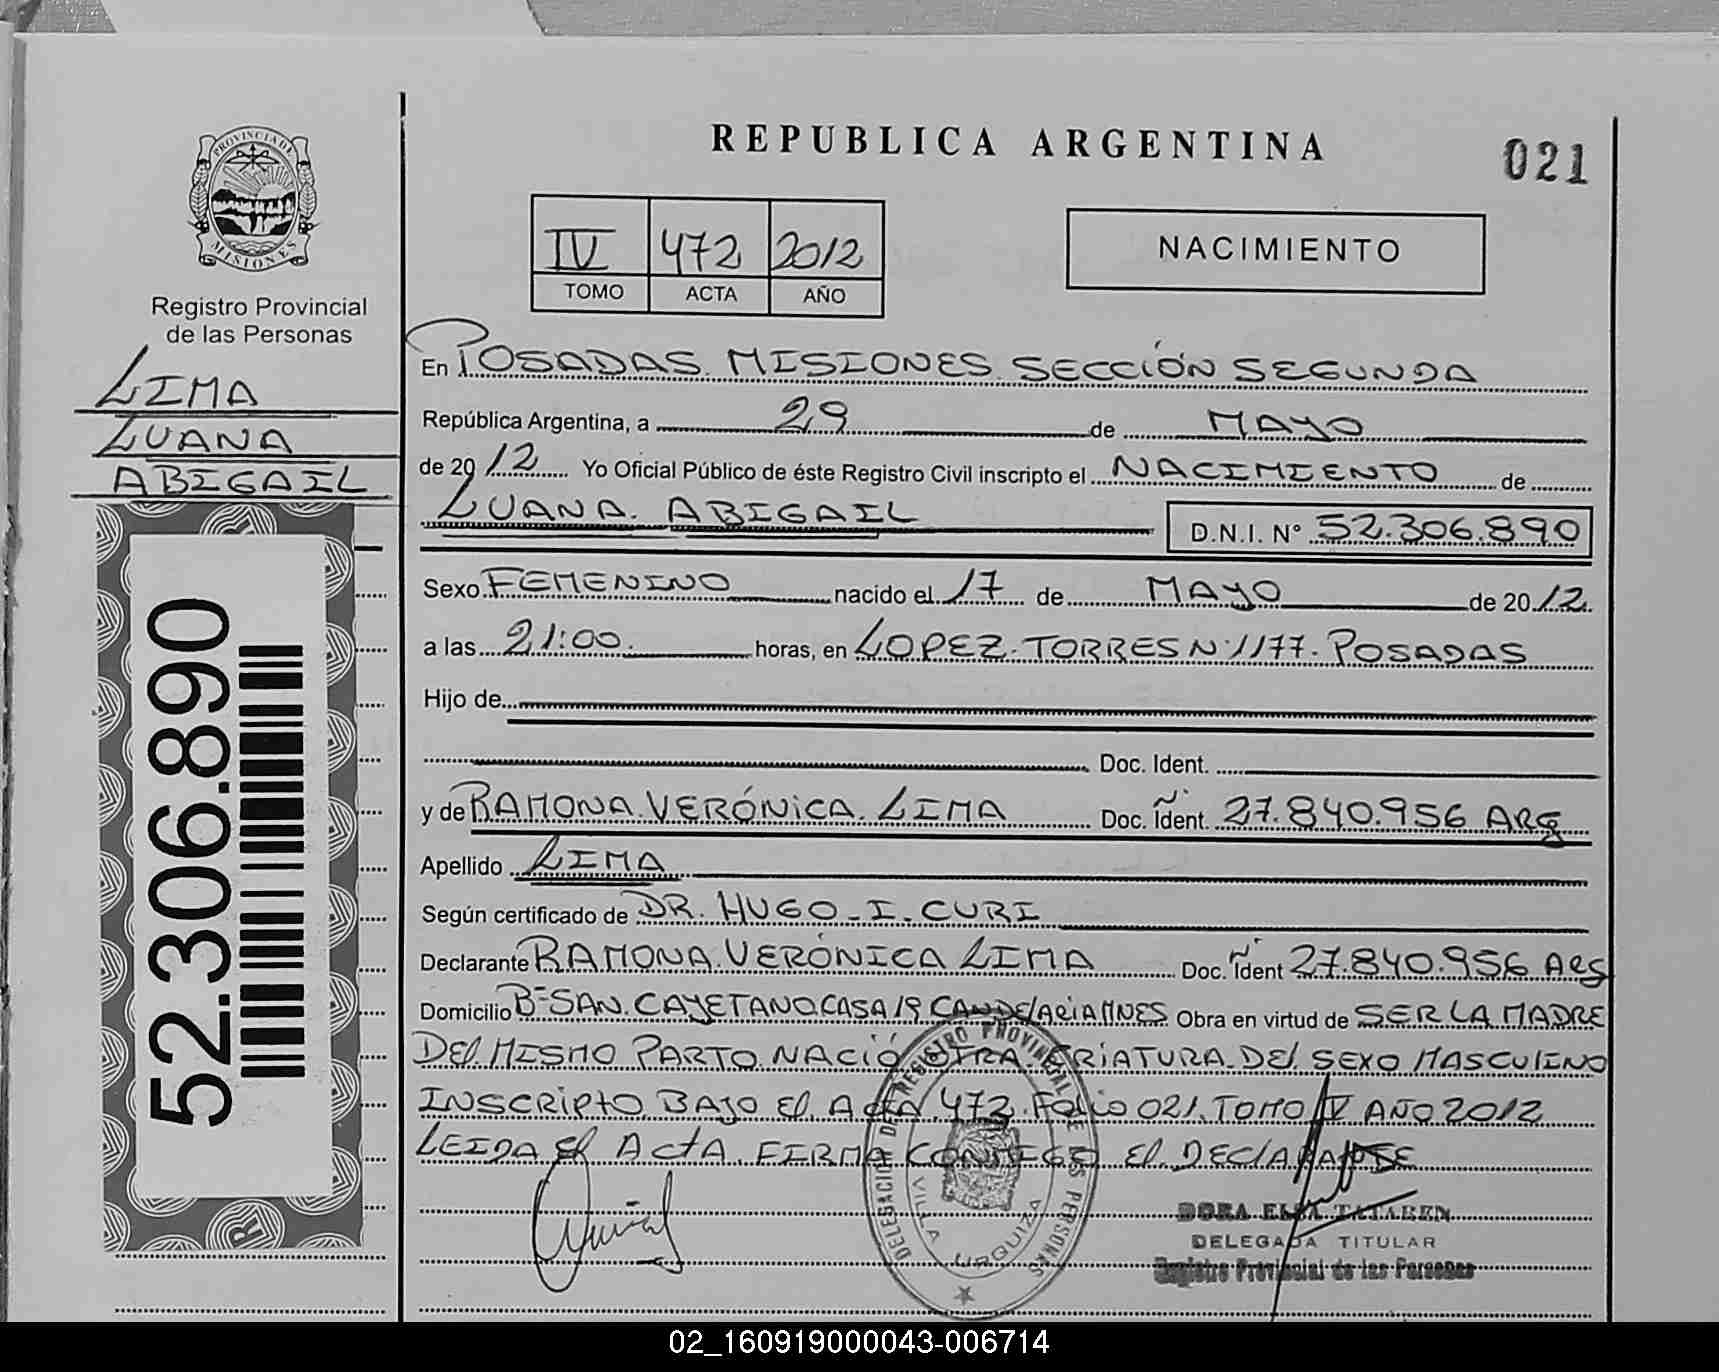 REPUBLICA ARGENTINA
021
PROVINCIA DE
MISIONES
Registro Provincial
de las Personas
IV 472 2012
TOMO ACTA AÑO
NACIMIENTO
LIMA
LUANA
ABIGAIL
52.306.890
En POSADAS. MISIONES. SECCIÓN SEGUNDA
República Argentina, a 29 de MAYO
de 2012 Yo Oficial Público de éste Registro Civil inscripto el NACIMIENTO de
LUANA. ABIGAIL D.N.I. N° 52.306.890
Sexo FEMENINO nacido el 17 de MAYO de 2012.
a las 21:00. horas, en LOPEZ. TORRES N° 1177. POSADAS
Hijo de
Doc. Ident.
y de RAMONA. VERÓNICA. LIMA Doc. Ident. 27.840.956 ARG
Apellido LIMA
Según certificado de DR. HUGO. I. CURI
Declarante RAMONA. VERÓNICA LIMA Doc. Ident 27.840.956 ARG
Domicilio B- SAN. CAYETANO CASA 19 CANDELARIA MNES Obra en virtud de SER LA MADRE
DEL MISMO PARTO. NACIÓ OTRA CRIATURA. DEL SEXO MASCULINO
INSCRIPTO BAJO El ACTA 473. FOLIO 021. TOMO IV AÑO 2012
LEIDA El ACTA. FIRMA CONMIGO El DECLARANTE
DELEGACIÓN DE REGISTRO PROVINCIAL DE LAS PERSONAS
VILLA URQUIZA
DORA ELSA TATAREN
DELEGADA TITULAR
Registro Provincial de las Personas
02_160919000043-006714